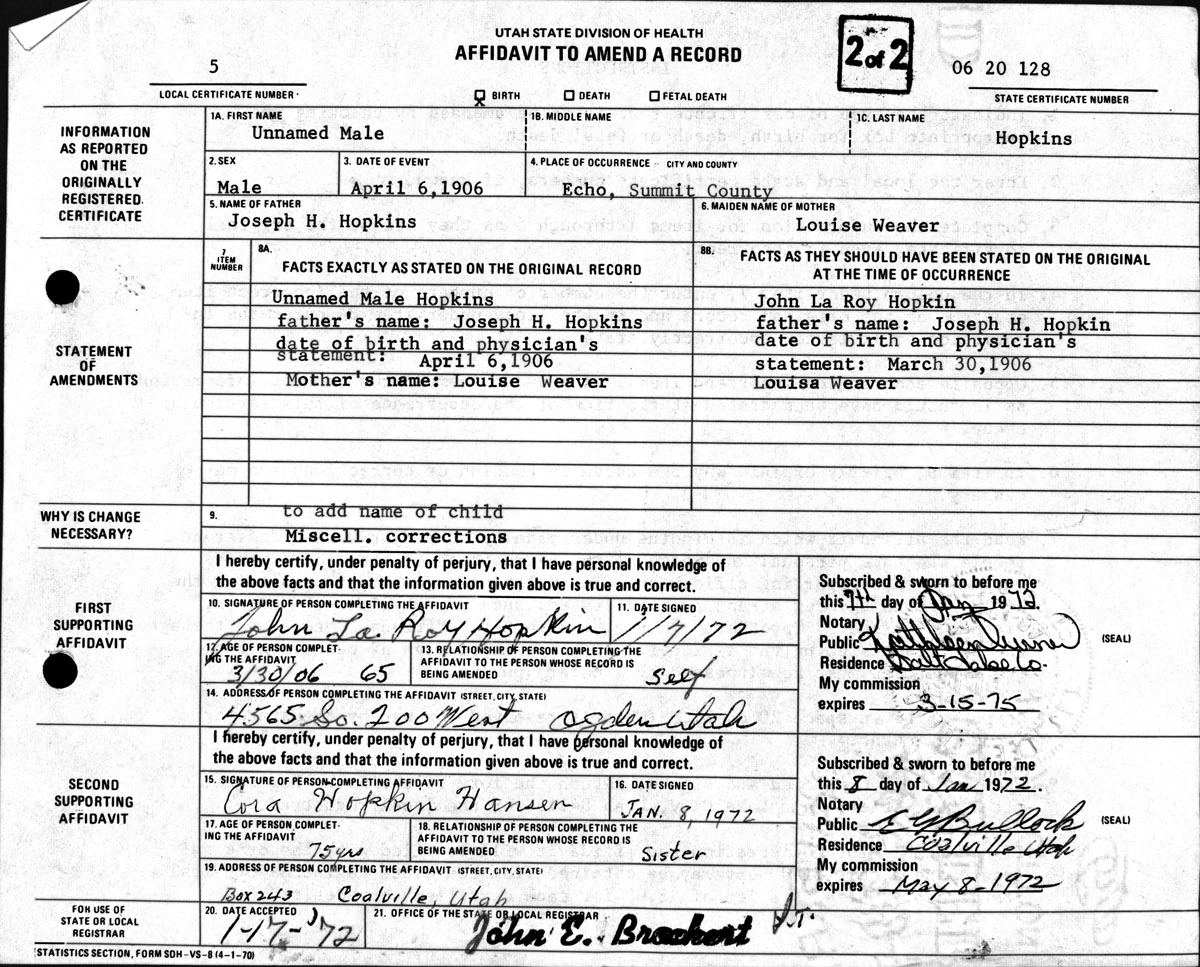 UTAH STATE DIVISION OF HEALTH
AFFIDAVIT TO AMEND A RECORD
2 of 2
5
06 20 128
LOCAL CERTIFICATE NUMBER
BIRTH DEATH FETAL DEATH
STATE CERTIFICATE NUMBER
INFORMATION AS REPORTED ON THE ORIGINALLY REGISTERED CERTIFICATE
1A. FIRST NAME 1B. MIDDLE NAME 1C. LAST NAME
Unnamed Male Hopkins
2. SEX 3. DATE OF EVENT 4. PLACE OF OCCURRENCE - CITY AND COUNTY
Male April 6,1906 Echo, Summit County
5. NAME OF FATHER 6. MAIDEN NAME OF MOTHER
Joseph H. Hopkins Louise Weaver
STATEMENT OF AMENDMENTS
7 ITEM NUMBER
8A. FACTS EXACTLY AS STATED ON THE ORIGINAL RECORD
8B. FACTS AS THEY SHOULD HAVE BEEN STATED ON THE ORIGINAL AT THE TIME OF OCCURRENCE
Unnamed Male Hopkins John La Roy Hopkin
father's name: Joseph H. Hopkins father's name: Joseph H. Hopkin
date of birth and physician's date of birth and physician's
statement: April 6,1906 statement: March 30,1906
Mother's name: Louise Weaver Louisa Weaver
WHY IS CHANGE NECESSARY?
9. to add name of child
Miscell. corrections
FIRST SUPPORTING AFFIDAVIT
I hereby certify, under penalty of perjury, that I have personal knowledge of
the above facts and that the information given above is true and correct.
10. SIGNATURE OF PERSON COMPLETING THE AFFIDAVIT 11. DATE SIGNED
John La Roy Hopkin 1/7/72
12. AGE OF PERSON COMPLETING THE AFFIDAVIT
3/30/06 65
13. RELATIONSHIP OF PERSON COMPLETING THE AFFIDAVIT TO THE PERSON WHOSE RECORD IS BEING AMENDED
Self
14. ADDRESS OF PERSON COMPLETING THE AFFIDAVIT (STREET, CITY, STATE)
4565 So. 200 West Ogden Utah
Subscribed & sworn to before me
this 7th day of Jan 1972.
Notary
Public Kathleen
Residence Salt Lake Co.
(SEAL)
My commission
expires 3-15-75
SECOND SUPPORTING AFFIDAVIT
I hereby certify, under penalty of perjury, that I have personal knowledge of
the above facts and that the information given above is true and correct.
15. SIGNATURE OF PERSON COMPLETING AFFIDAVIT 16. DATE SIGNED
Cora Hopkin Hansen JAN. 8, 1972
17. AGE OF PERSON COMPLETING THE AFFIDAVIT
75 yrs
18. RELATIONSHIP OF PERSON COMPLETING THE AFFIDAVIT TO THE PERSON WHOSE RECORD IS BEING AMENDED
Sister
19. ADDRESS OF PERSON COMPLETING THE AFFIDAVIT (STREET, CITY, STATE)
Box 243 Coalville, Utah
Subscribed & sworn to before me
this 8 day of Jan 1972.
Notary
Public E G Bullock
(SEAL)
Residence Coalville Utah
My commission
expires May 8-1972
FOR USE OF STATE OR LOCAL REGISTRAR
20. DATE ACCEPTED 21. OFFICE OF THE STATE OR LOCAL REGISTRAR
1-17-'72 John E. Brockert
STATISTICS SECTION, FORM SDH-VS-8 (4-1-70)